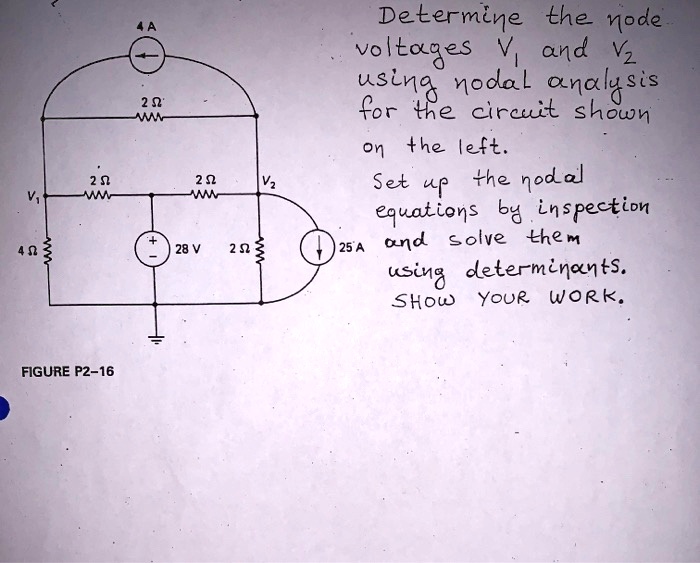 Determine the node
voltages V₁ and V₂
using nodal analysis
for the circuit shown
on the left.
Set up the nodal
equations by inspection
and solve them
using determinants.
SHOW YOUR WORK.
4 A
2 Ω
2 Ω
2 Ω
V₁
V₂
4 Ω
+
−
28 V
2 Ω
25 A
FIGURE P2–16